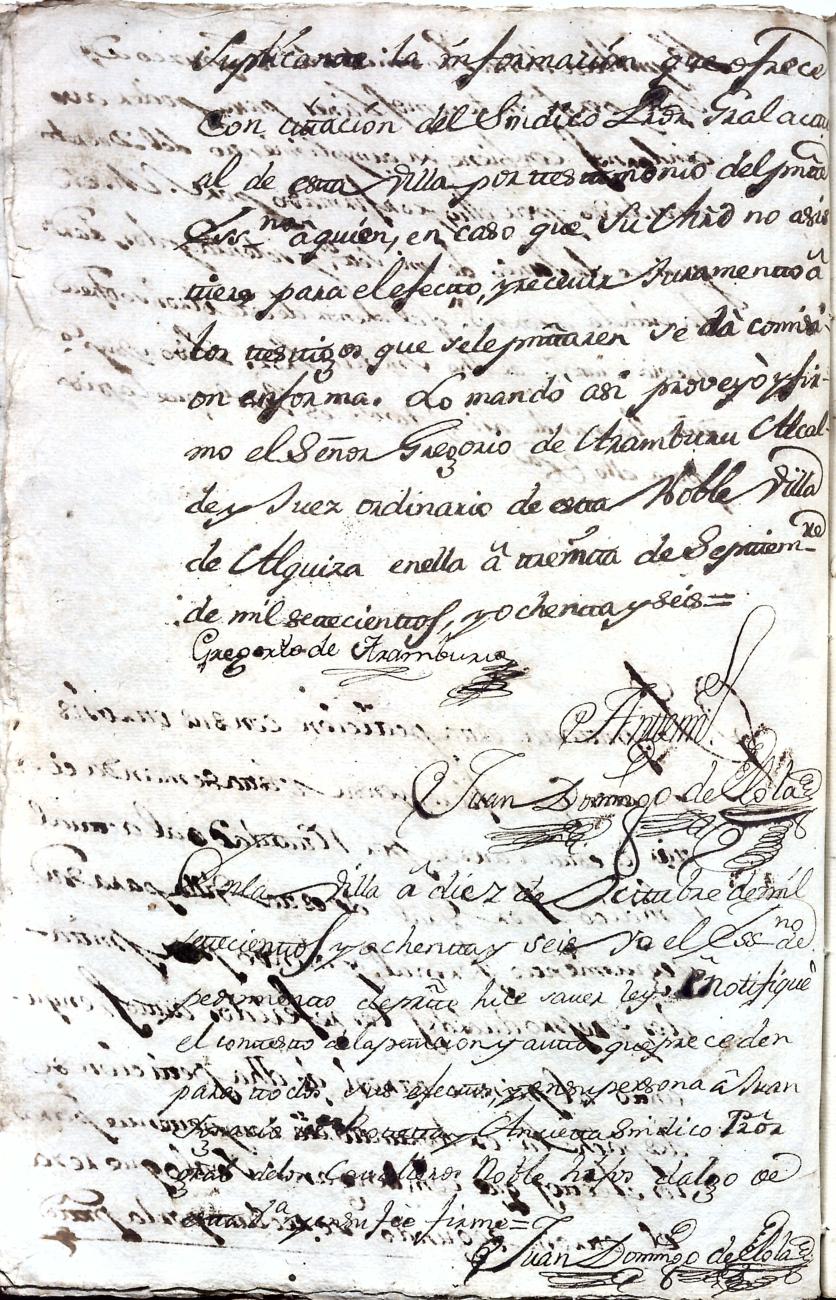 Suplicante la información que ofrece
Con citación del Sindico Pror Gral
al de esta Villa por testimonio del pnte
Essno â quien, en caso que Su Mrd no asis
tiere para el efecto, y recevir Juramento â
los testigos que se le pntaren se dà comisi
on en forma. Lo mandò asi proveyò y fir-
mo el Señor Gregorio de Aramburu Alcal-
de y Juez ordinario de esta Noble Villa
de Alquiza en ella â treinta de Septiemre
de mil setecientos, y ochenta y seis=
Gregorio de Aramburu
Antemi
Juan Domingo de
En la Villa â diez de Octubre de mil
setecientos y ochenta y seis yo el Essno de
pedimento de pte hice saver ley, y Notifiquè
el contesto de la peticion y auto que preceden
para todos sus efectos, y en su persona â Juan
Sindico Pror
gral de los Cavalleros Nobles hijos dalgo de
esta Va y en su fee firme=
Juan Domingo de